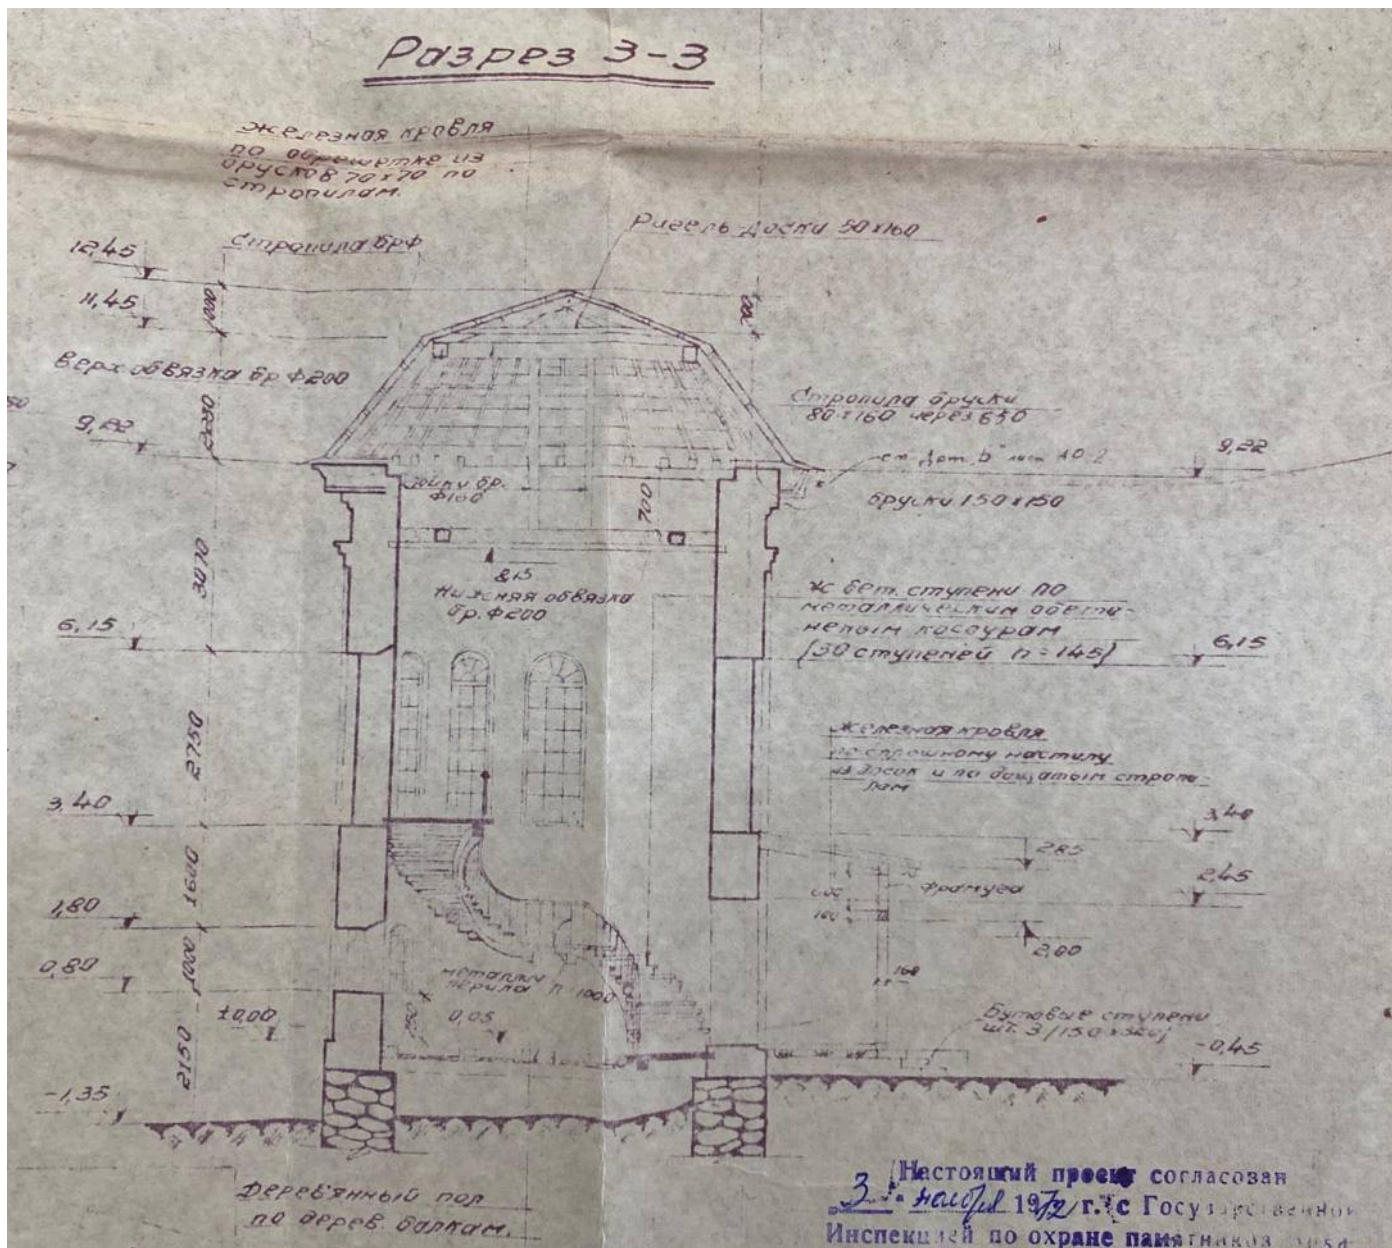 Разрез 3-3
Железная кровля
по обрешетке из
брусков 70х70 по
стропилам.
Ригель-доски 50х160
12,45
Стропила брф
11,45
1000
Верх обвязка бр ф200
2230
Стропила бруски
80х160 через 650
9,22
9,22
бр.
ф160
700
бруски 150х150
3070
8,15
Нижняя обвязка
бр. ф200
ж бет. ступени по
металлическим
косоурам
(30 ступеней h=145)
6,15
6,15
2750
Железная кровля
по сплошному настилу
из досок и по дощатым стропи-
лам
3,40
3,40
2,85
1600
600
фрамуга
2,45
1,80
160
2,00
1000
0,80
металлич
перила h=1000
160
±0,00
0,05
Бутовые ступени
шт. 3
-0,45
2150
-1,35
Деревянный пол
по дерев. балкам.
Настоящий проект согласован
3 ноября 1972 г. с Государственной
Инспекцией по охране памятников